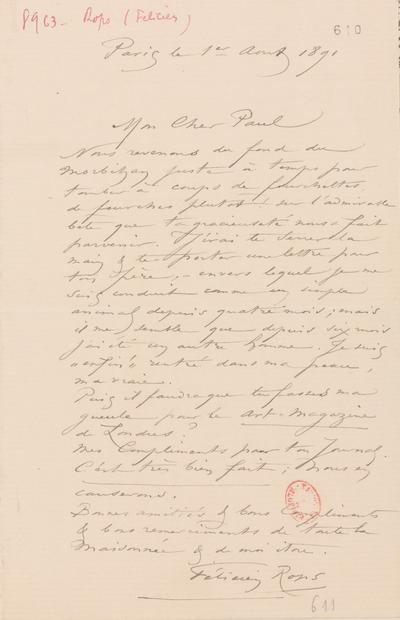 8963 - Rops (Félicien)
610
Paris le 1er Aout 1891
Mon Cher Paul
Nous revenons du fond du
Morbihan juste à temps pour
tomber à coups de fourchettes,
de fourches plutôt ! sur l'admirable
bête que ta gracieuseté nous a fait
parvenir. J'irai te serrer la
main & te porter une lettre pour
ton père, - envers lequel je me
suis conduit comme un simple
animal depuis quatre mois ; mais
il me semble que depuis six mois
j'ai été un autre homme. Je suis
« enfin » rentré dans ma peau,
ma vraie.
Puis il faudra que tu fasses ma
gueule pour le Art-Magazine
de Londres ?
Mes Compliments pour ton Journal.
C'est très bien fait ; nous en
causerons.
Bonnes amitiés & bons Compliments
& bons remerciments de toute la
Maisonnée & de moi itou.
Félicien Rops
611